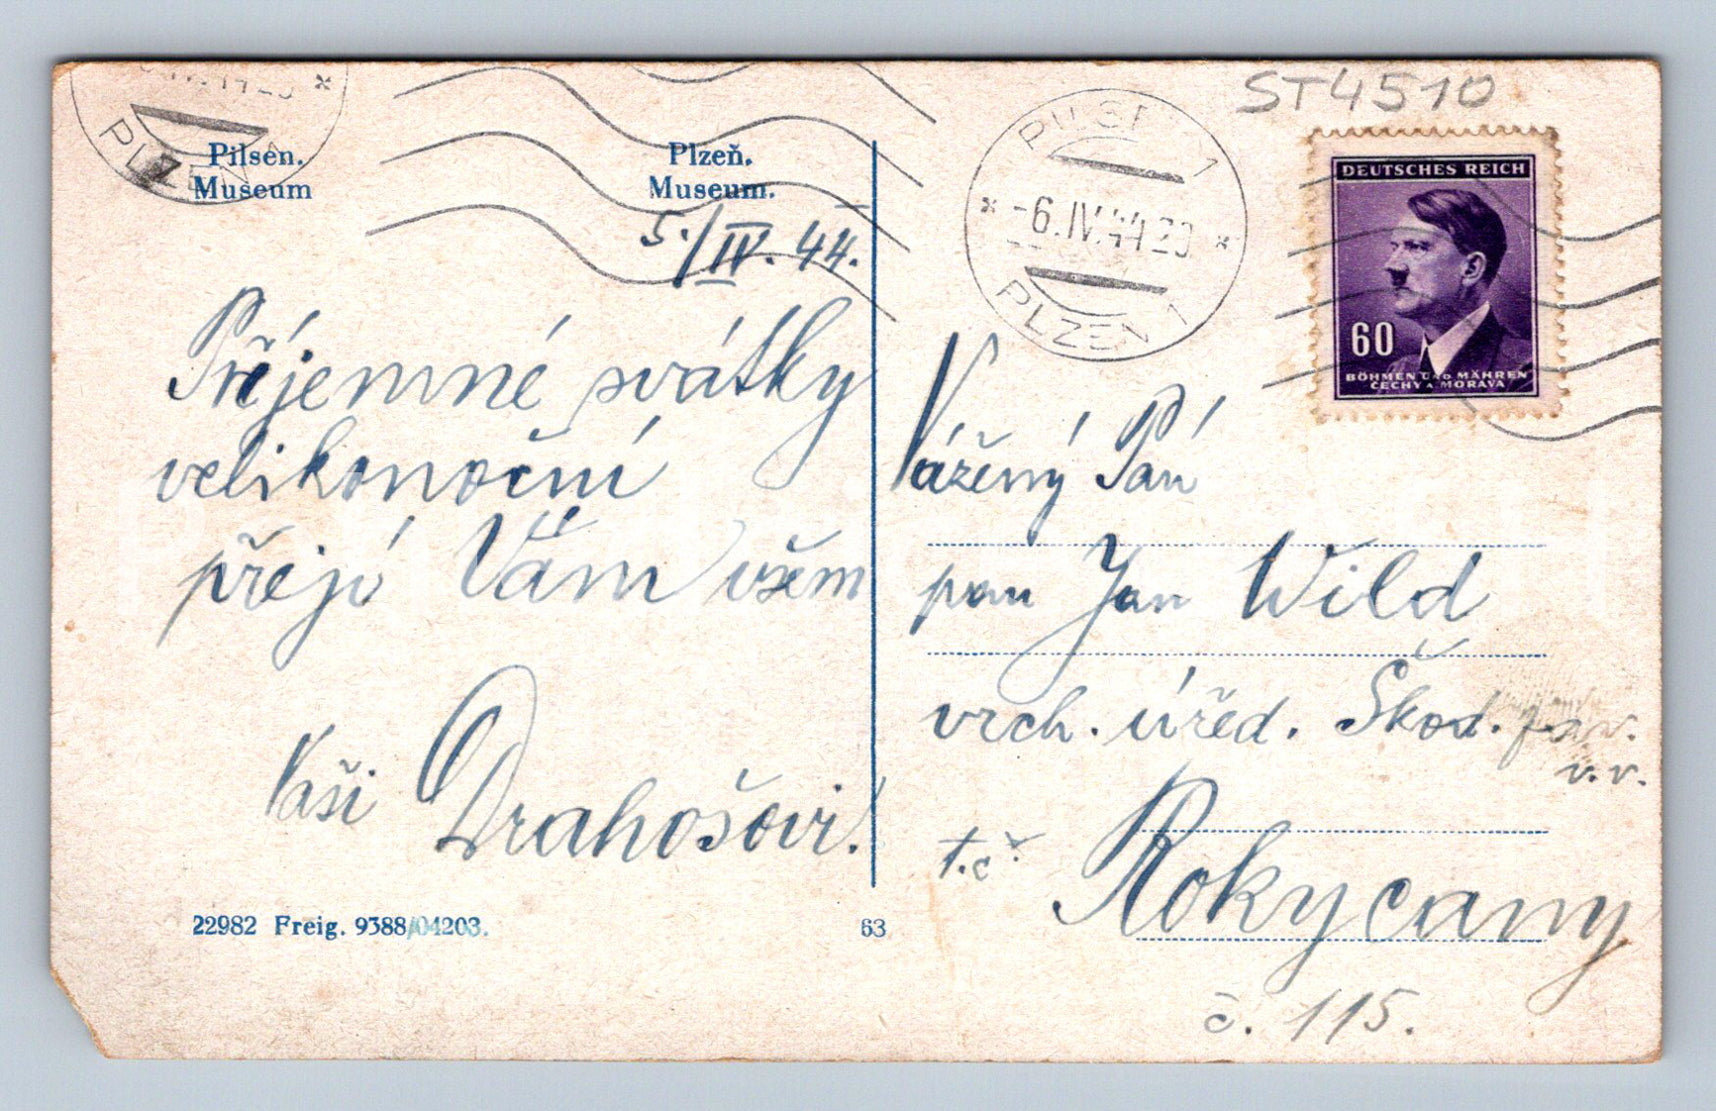 ST4510
Pilsen.
Museum
Plzeň.
Museum.
PLZEN 1
PILSEN 1
-6.IV.44 20
PLZEN 1
DEUTSCHES REICH
60
BÖHMEN UND MÄHREN
ČECHY A MORAVA
5./IV. 44.
Příjemné svátky
velikonoční
přejí Vám všem
Vaši Drahošovi.
22982 Freig. 9388/04203.
63
Vážený Pán
pan Jan Wild
vrch. úřed. Škod.
v.v.
t.č. Rokycany
č. 115.